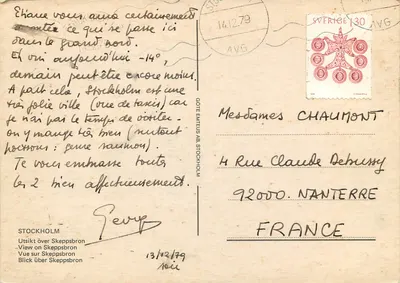 Etiane vous aura certainement
ce qui se passe ici
dans le grand nord.
Et oui aujourd'hui -14°,
demain peut être encore moins.
A part cela, Stockholm est une
très jolie ville (vue de taxis) car
je n'ai pas le temps de visiter.
on y mange très bien (surtout
poissons : genre saumon).
Je vous embrasse toutes
les 2 bien affectueusement.
STOCKHOLM
Utsikt över Skeppsbron
View on Skeppsbron
Vue sur Skeppsbron
Blick über Skeppsbron
13/12/79
GÖTE EMTUS AB, STOCKHOLM
14.12.79
AVG
AVG
SVERIGE 130
Mesdames CHAUMONT
4 Rue Claude Debussy
92000. NANTERRE
FRANCE